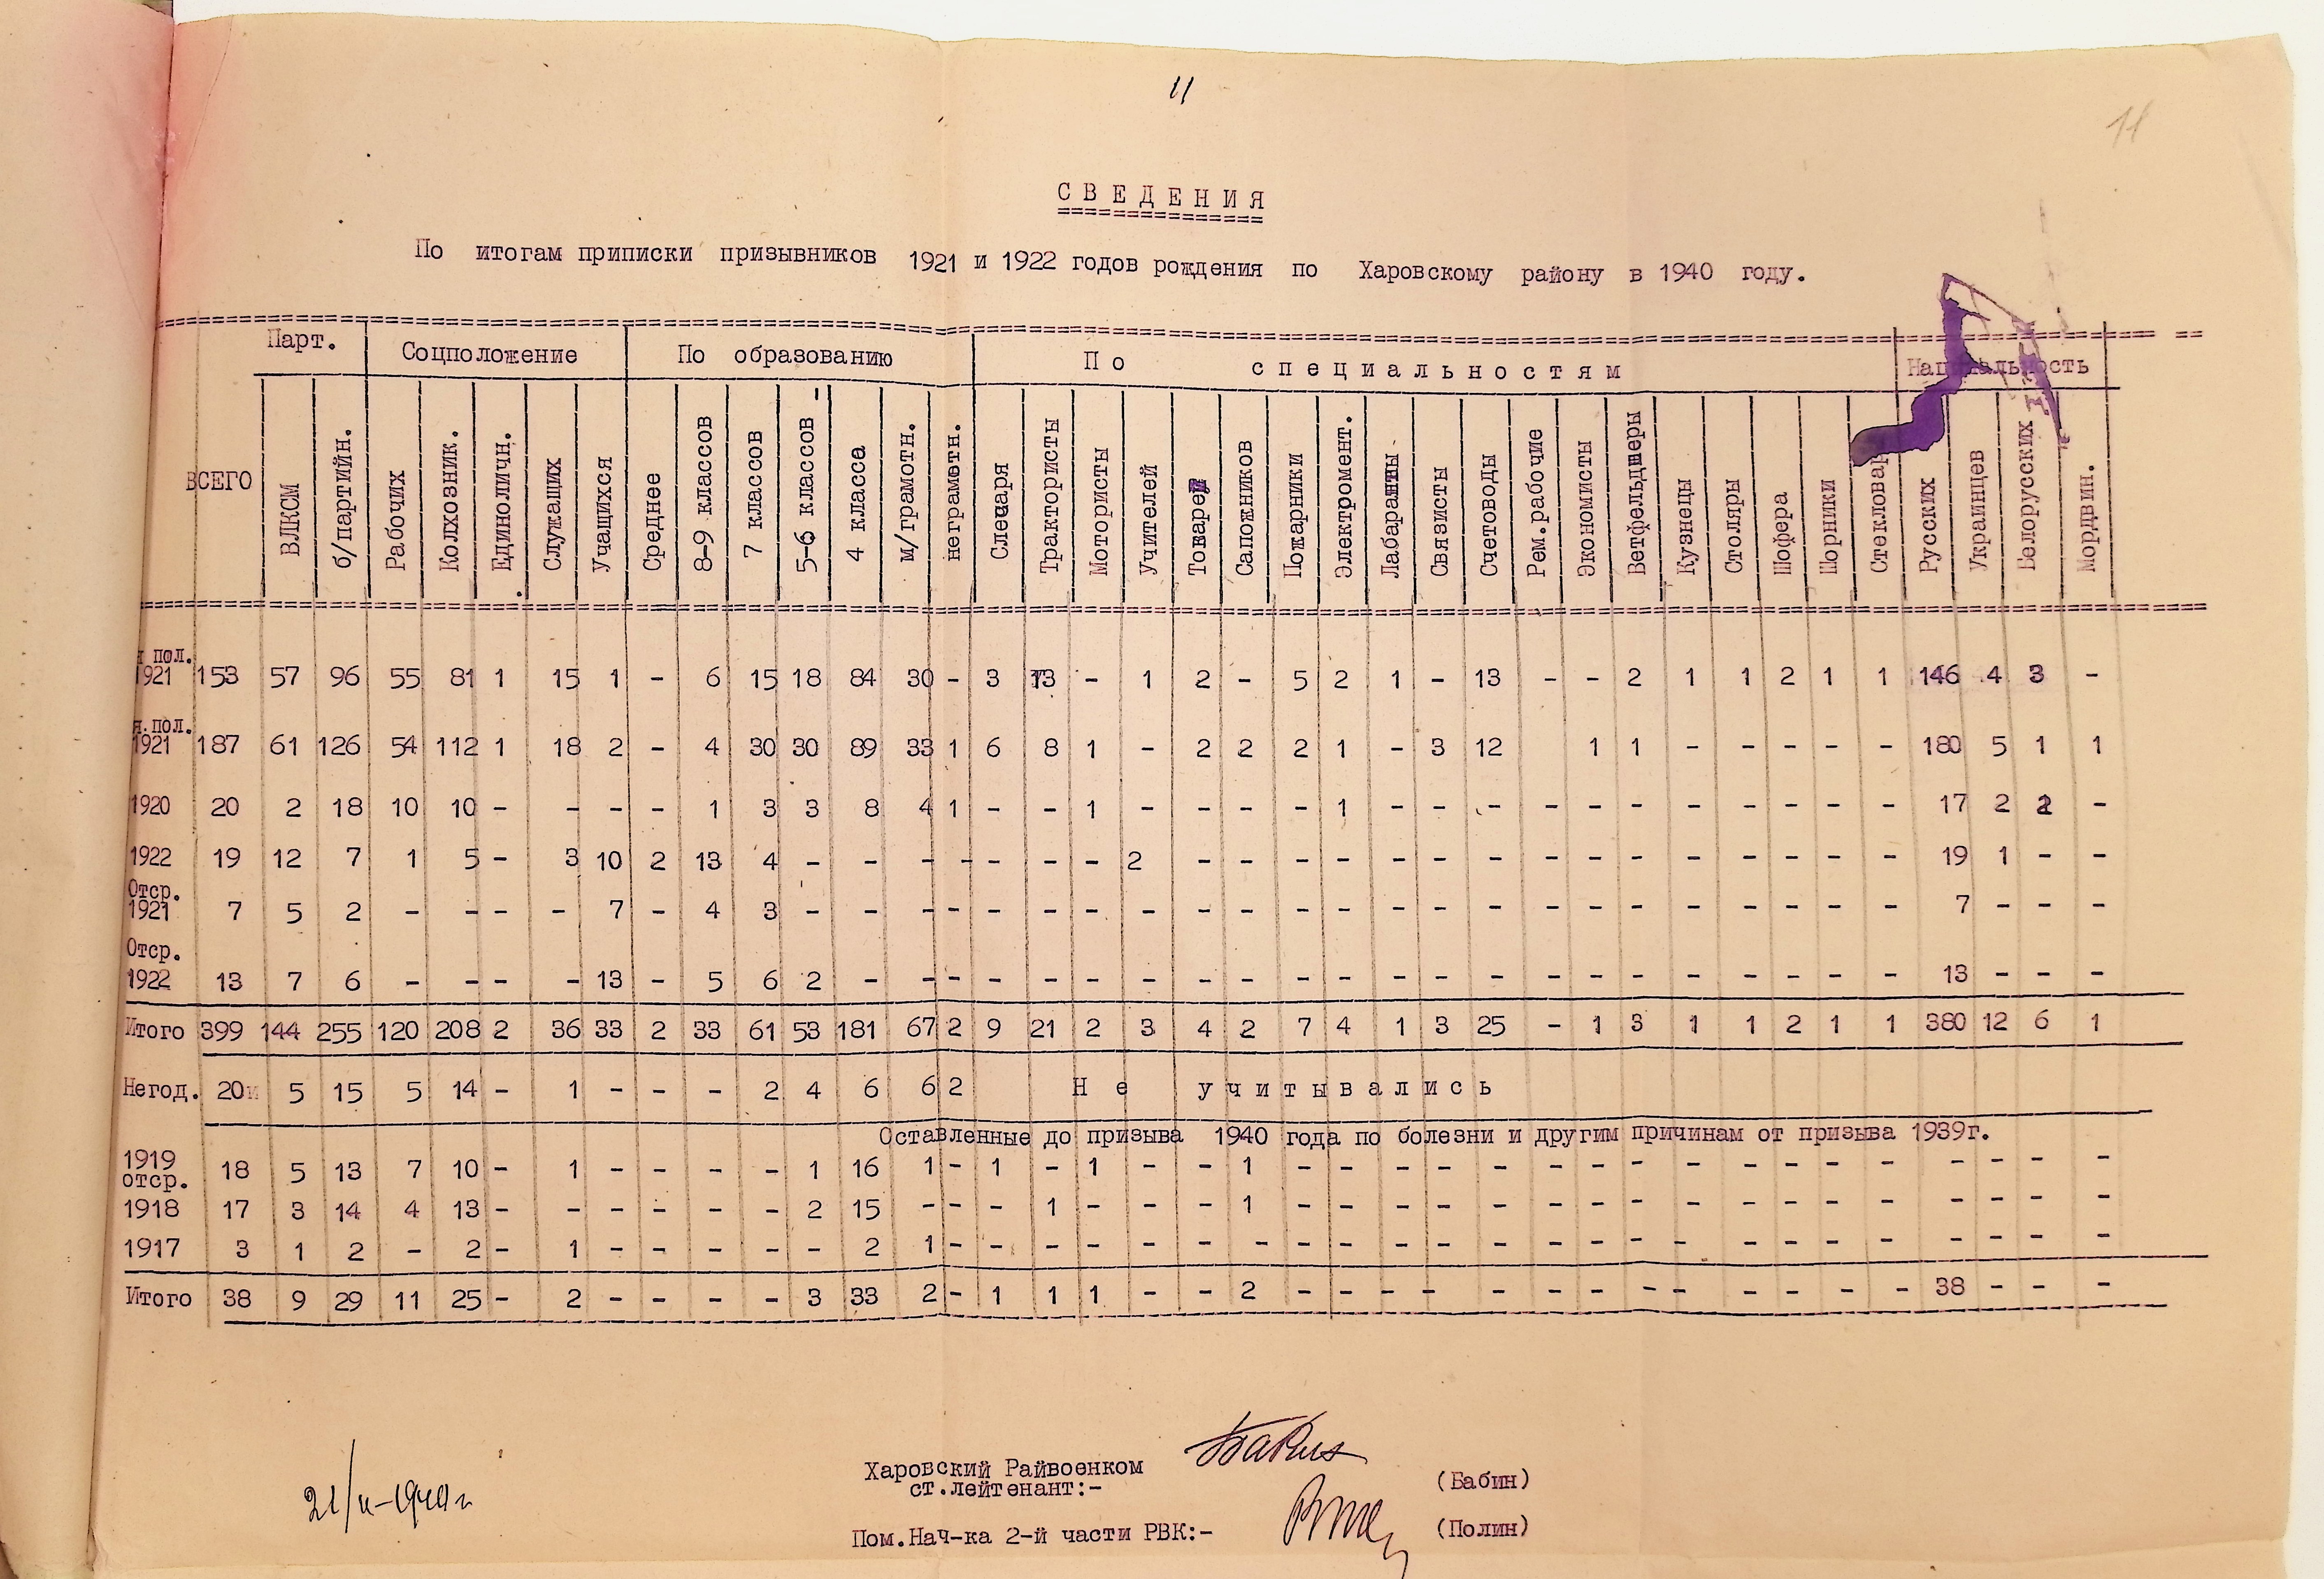 11
11
СВЕДЕНИЯ
По итогам приписки призывников 1921 и 1922 годов рождения по Харовскому району в 1940 году.
Парт. Соцположение По образованию По специальностям Национальность
ВСЕГО ВЛКСМ б/партийн. Рабочих Колхозник. Единоличн. Служащих Учащихся Среднее 8-9 классов 7 классов 5-6 классов 4 класса м/грамотн. неграмотн. Слесаря Трактористы Мотористы Учителей Товарей Сапожников Пожарники Электромент. Лабаранты Связисты Счетоводы Рем.рабочие Экономисты Ветфельдшеры Кузнецы Столяры Шофера Шорники Стекловар Русских Украинцев Белорусских Мордвин.
пол.
1921 153 57 96 55 81 1 15 1 - 6 15 18 84 30 - 3 13 - 1 2 - 5 2 1 - 13 - - 2 1 1 2 1 1 146 4 3 -
н.пол.
1921 187 61 126 54 112 1 18 2 - 4 30 30 89 33 1 6 8 1 - 2 2 2 1 - 3 12 1 1 - - - - - 180 5 1 1
1920 20 2 18 10 10 - - - - 1 3 3 8 4 1 - - 1 - - - - 1 - - - - - - - - - - - 17 2 2 -
1922 19 12 7 1 5 - 3 10 2 13 4 - - - - - - - 2 - - - - - - - - - - - - - - - 19 1 - -
Отср.
1921 7 5 2 - - - - 7 - 4 3 - - - - - - - - - - - - - - - - - - - - - - - 7 - - -
Отср.
1922 13 7 6 - - - - 13 - 5 6 2 - - - - - - - - - - - - - - - - - - - - - - 13 - - -
Итого 399 144 255 120 208 2 36 33 2 33 61 53 181 67 2 9 21 2 3 4 2 7 4 1 3 25 - 1 3 1 1 2 1 1 380 12 6 1
Негод. 20 5 15 5 14 - 1 - - - 2 4 6 6 2 Не учитывались
Оставленные до призыва 1940 года по болезни и другим причинам от призыва 1939г.
1919 18 5 13 7 10 - 1 - - - - 1 16 1 - 1 - 1 - - 1 - - - - - - - - - - - - - - - - -
отср.
1918 17 3 14 4 13 - - - - - - 2 15 - - - 1 - - - 1 - - - - - - - - - - - - - - - - -
1917 3 1 2 - 2 - 1 - - - - - 2 1 - - - - - - - - - - - - - - - - - - - - - - - -
Итого 38 9 29 11 25 - 2 - - - - 3 33 2 - 1 1 1 - - 2 - - - - - - - - - - - - - 38 - - -
Харовский Райвоенком
ст.лейтенант:- Бабин (Бабин)
Пом.Нач-ка 2-й части РВК:- (Полин)